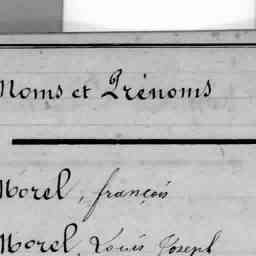 Noms et Prénoms
Morel, françois
Morel, Louis Joseph